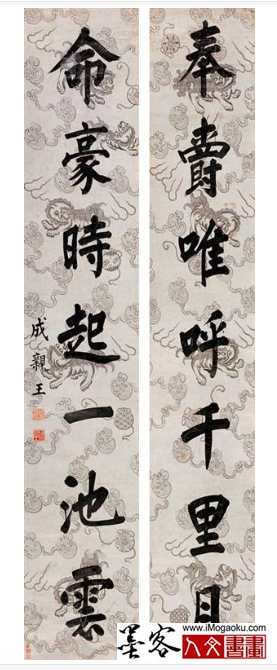 奉爵唯呼千里月
命豪時起一池雲
成親王
墨客
www.iMogaoku.com
人文書畫